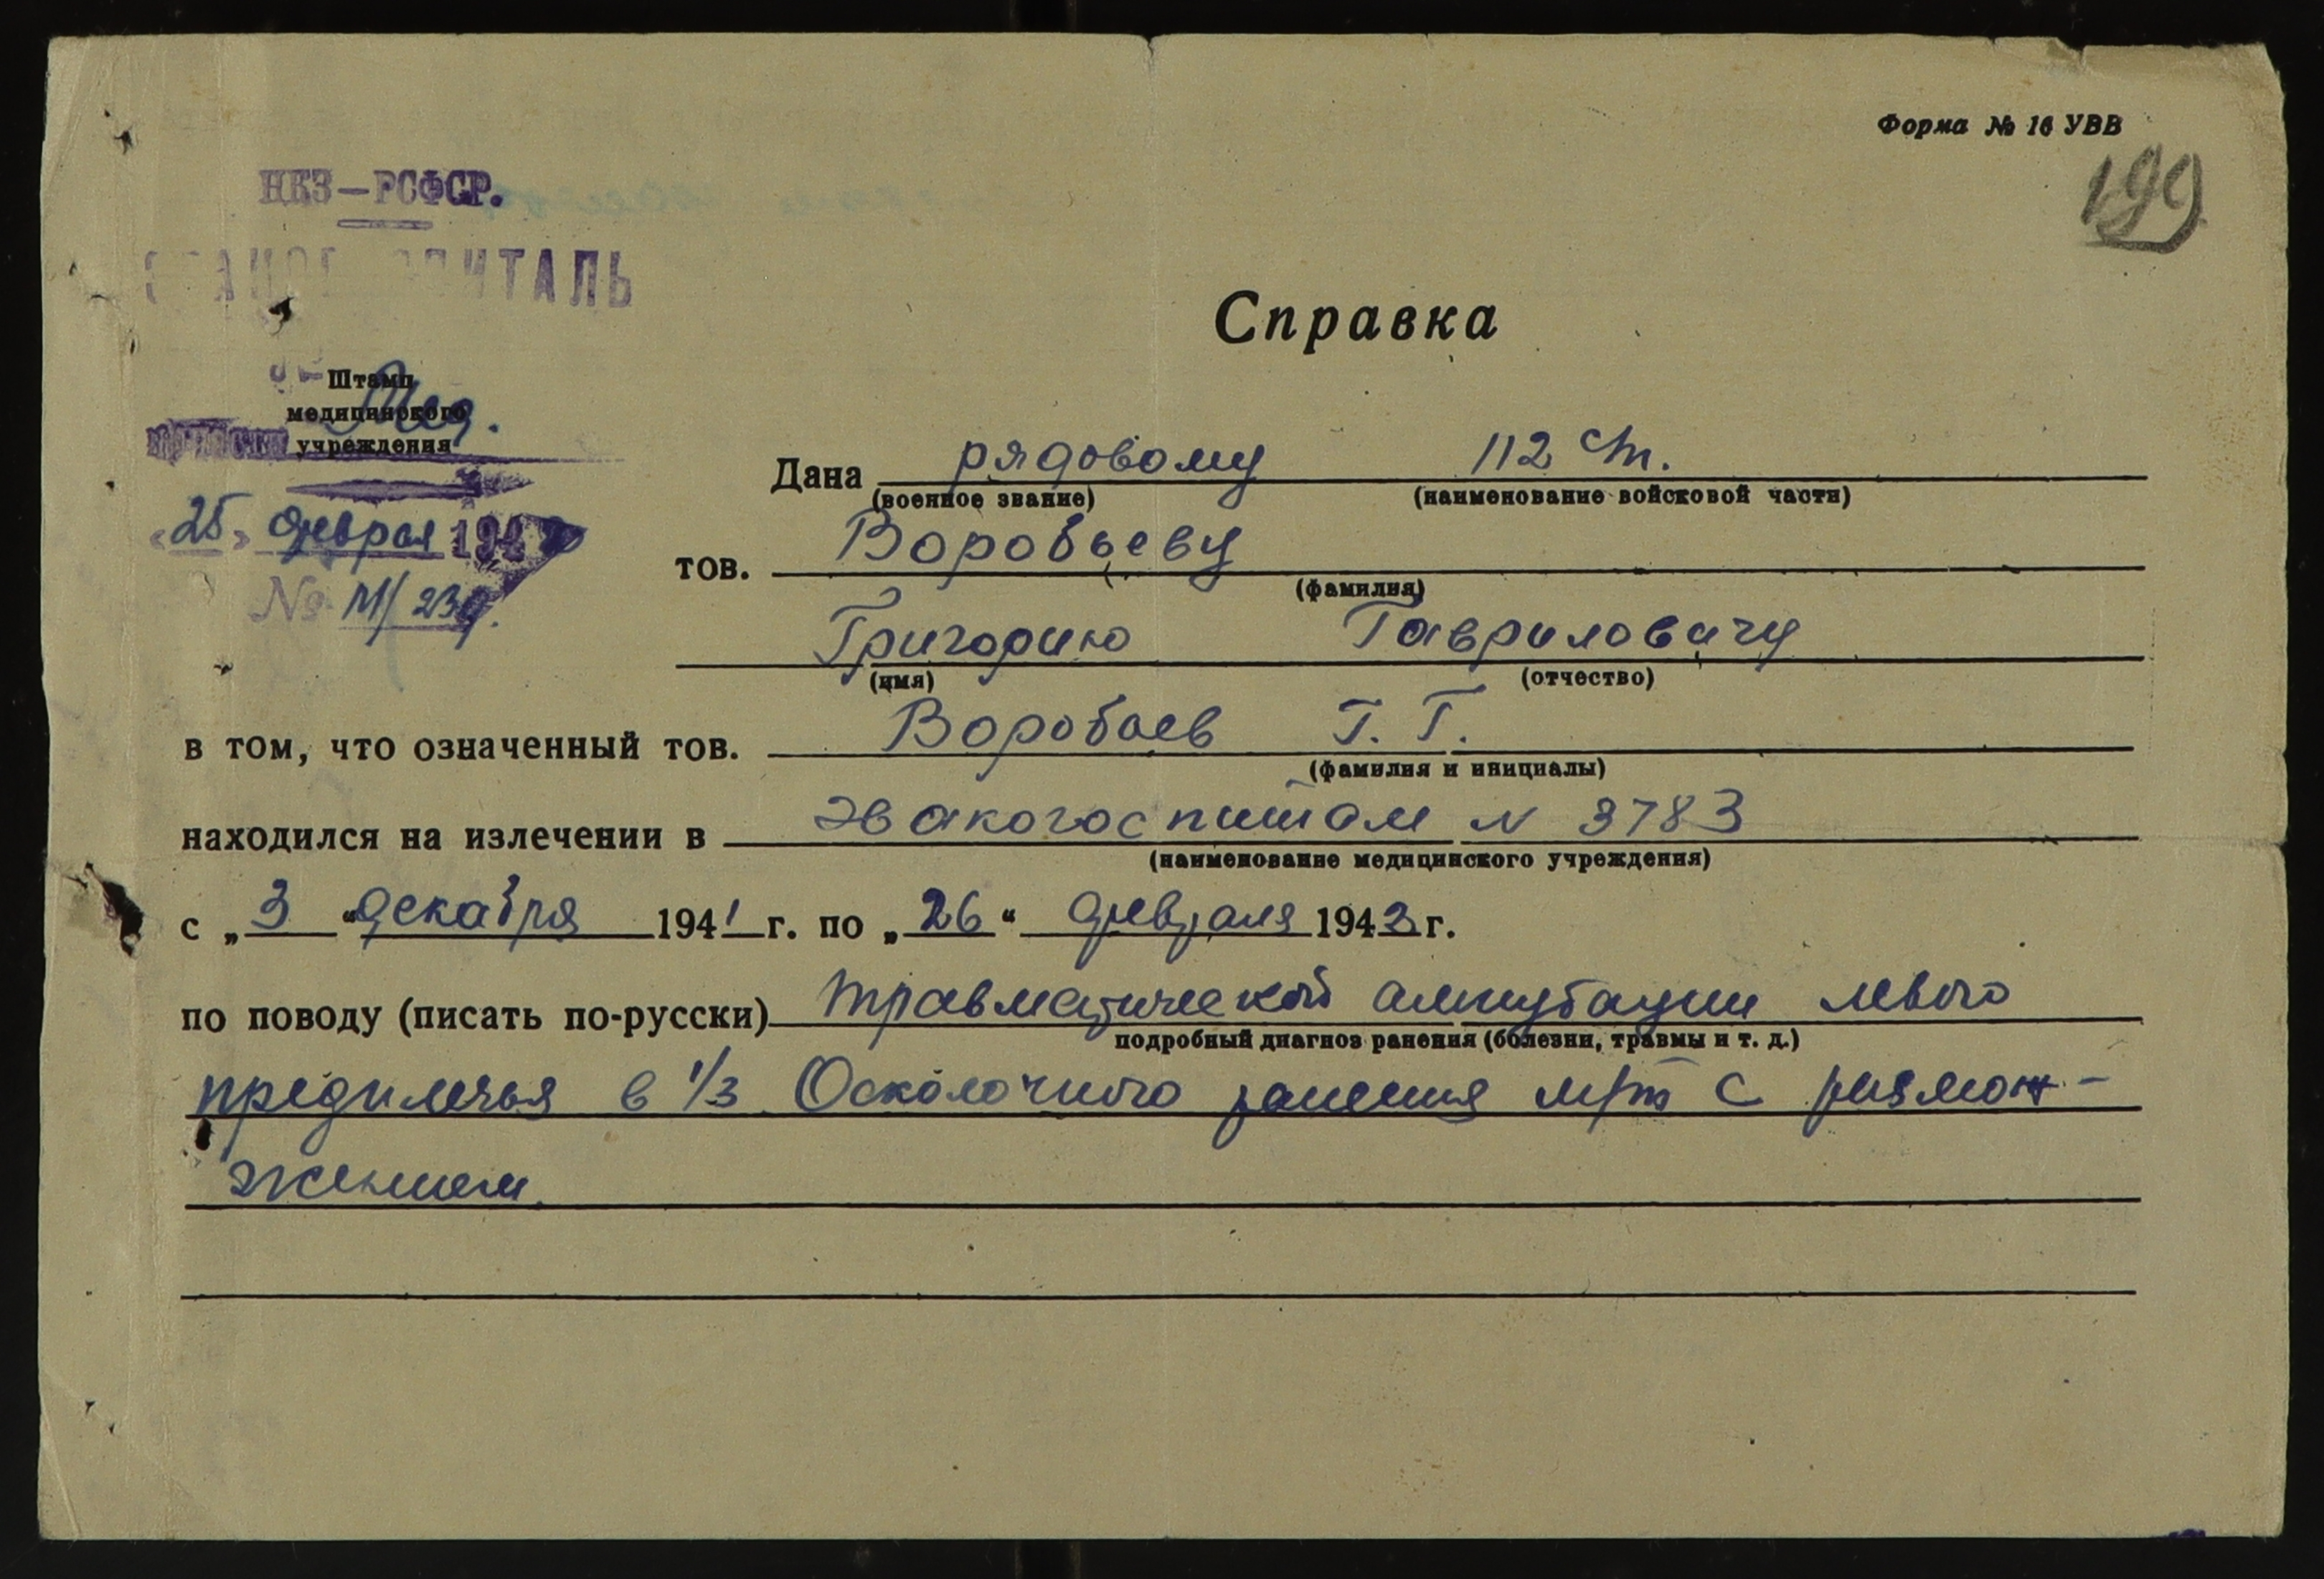 Форма № 16 УВВ
199
НКЗ-РСФСР.
Справка
Штамп
медицинского
учреждения
Дана рядовому 112 сп.
(военное звание) (наименование войсковой части)
"25" февраля 194
№ М/239.
тов. Воробьеву
(фамилия)
Григорию Гавриловичу
(имя) (отчество)
в том, что означенный тов. Воробьев Г. Г.
(фамилия и инициалы)
находился на излечении в эвакогоспитале N 3783
(наименование медицинского учреждения)
с „3“ декабря 1941 г. по „26“ февраля 1943 г.
по поводу (писать по-русски) травматической ампутации левого
подробный диагноз ранения (болезни, травмы и т. д.)
предплечья в 1/3 Осколочного ранения м/т с размож-
жением.